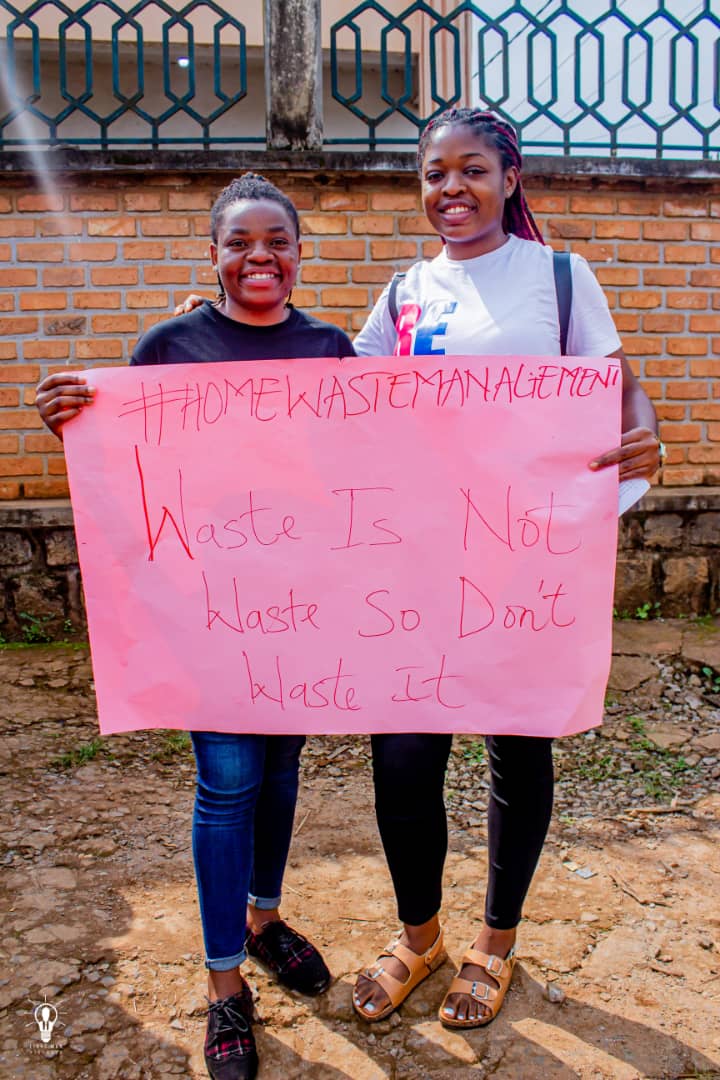 RE
#HOMEWASTEMANAGEMENT
Waste Is Not
Waste So Don't
Waste It